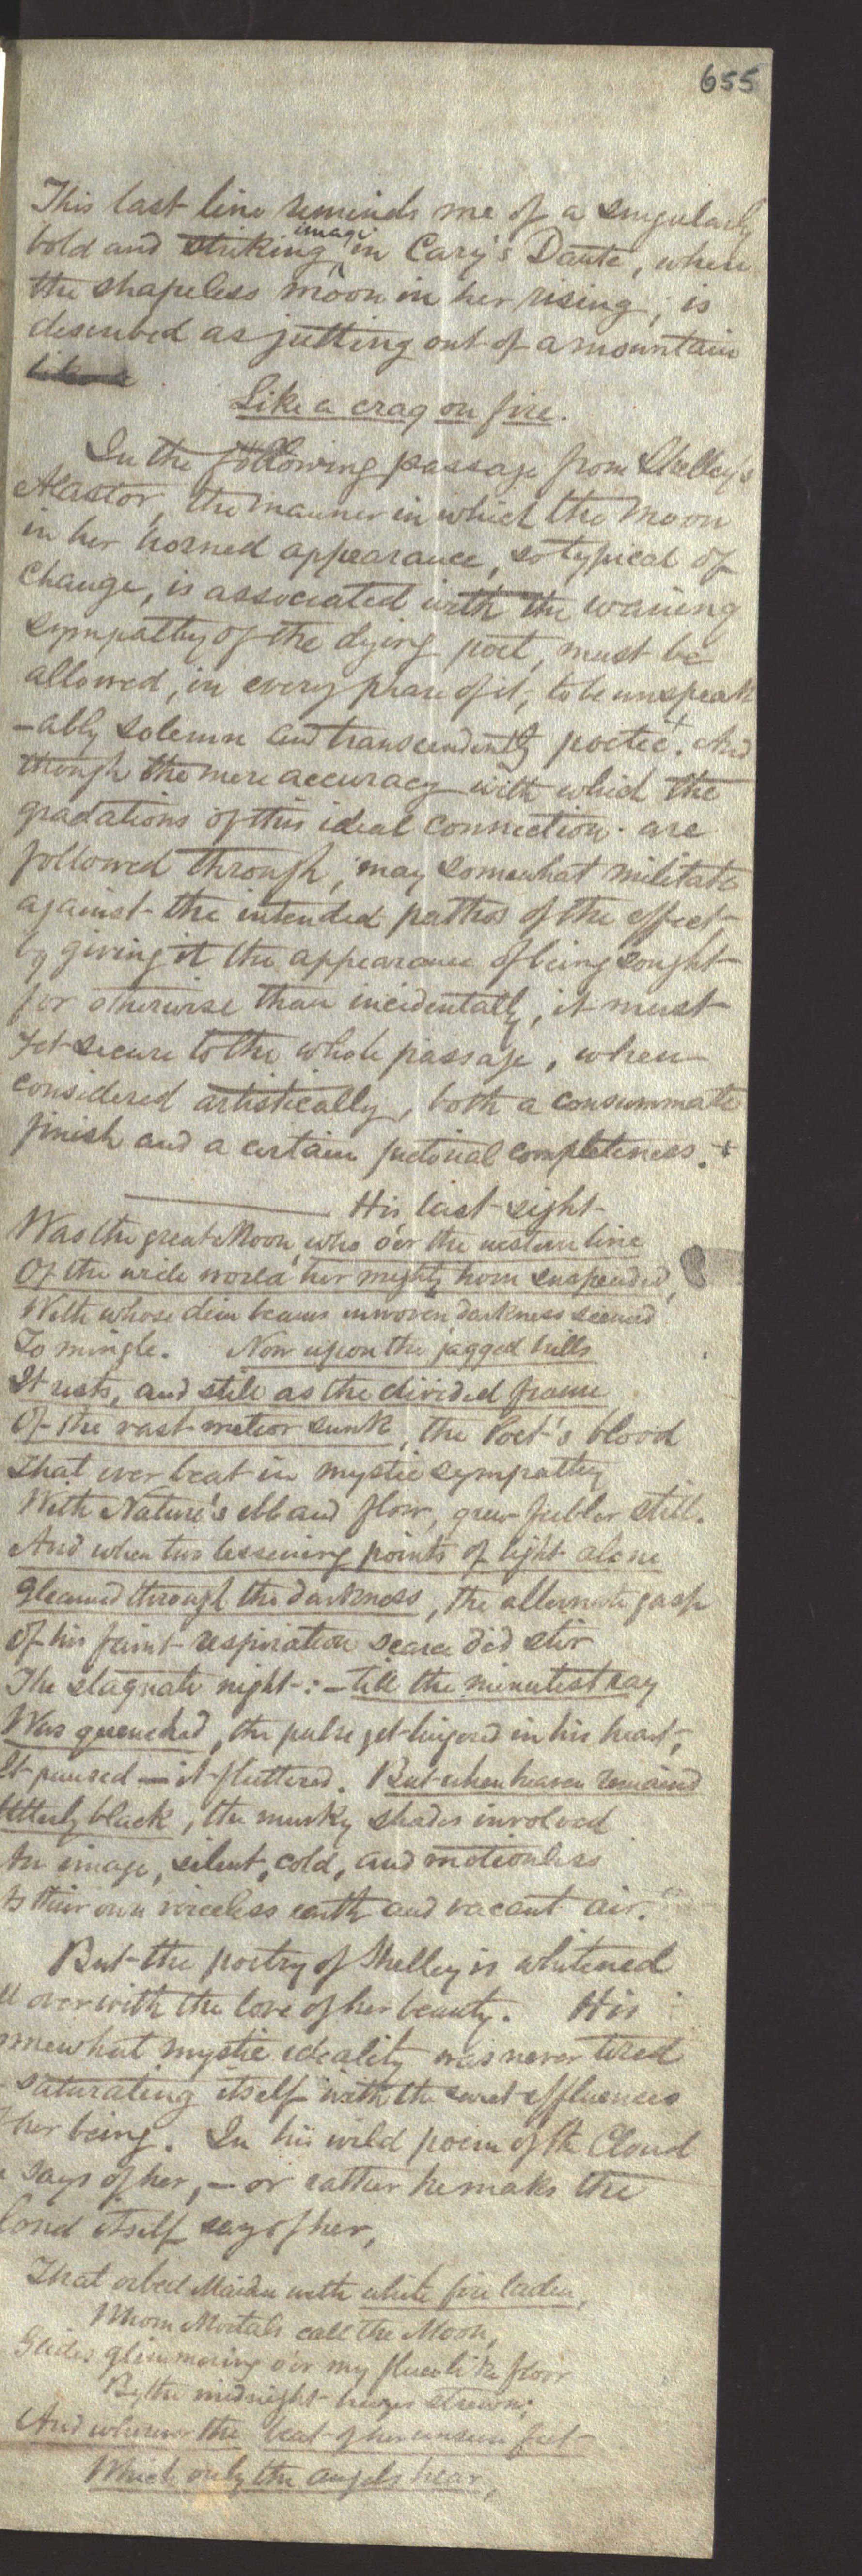 655
This last line reminds me of a singularly
bold and striking imagi in Cary's Dante, where
the shapeless moon in her rising, is
described as jutting out of a mountain
like a
Like a crag on fire.
In the following passage from Shelley's
Alastor, the manner in which the Moon
in her horned appearance, so typical of
Change, is associated with the waning
sympathy of the dying poet, must be
allowed, in every phase of it, to be unspeak
-ably solemn and transcendently poetic. And
though the mere accuracy with which the
gradations of this ideal connection are
followed through, may somewhat militate
against the intended pathos of the effect,
by giving it the appearance of being sought
for otherwise than incidentally, it must
yet secure to the whole passage, when
considered artistically, both a consummate
finish and a certain pictorial completeness. +
His last sight
Was the great Moon, who o'er the western line
Of the wide world her mighty horn suspended,
With whose dim beams inwoven darkness seemed
To mingle. Now upon the jagged hills
It rests, and still as the divided frame
Of the vast meteor sunk, the Poet's blood
That ever beat in mystic sympathy
With Nature's ebb and flow, grew feebler still.
And when two lessening points of light alone
gleamed through the darkness, the alternate gasp
Of his faint respiration scarce did stir
The stagnate night: – till the minutest ray
Was quenched, the pulse yet lingered in his heart;
It paused — it fluttered. But when heaven remained
Utterly black, the murky shades involved
An image, silent, cold, and motionless
As their own voiceless earth and vacant air.
But the poetry of Shelley is whitened
ll over with the love of her beauty. His
mewhat mystic ideality was never tired
saturating itself with the sweet effluences
f her being. In his wild poem of the Cloud
e says of her, – or rather he makes the
loud itself say of her,
That orbed Maiden with white fire laden,
Whom Mortals call the Moon,
Glides glimmering o'er my fleecelike floor
By the midnight breezes strewn;
And wherever the beat of her unseen feet
Which only the angels hear,